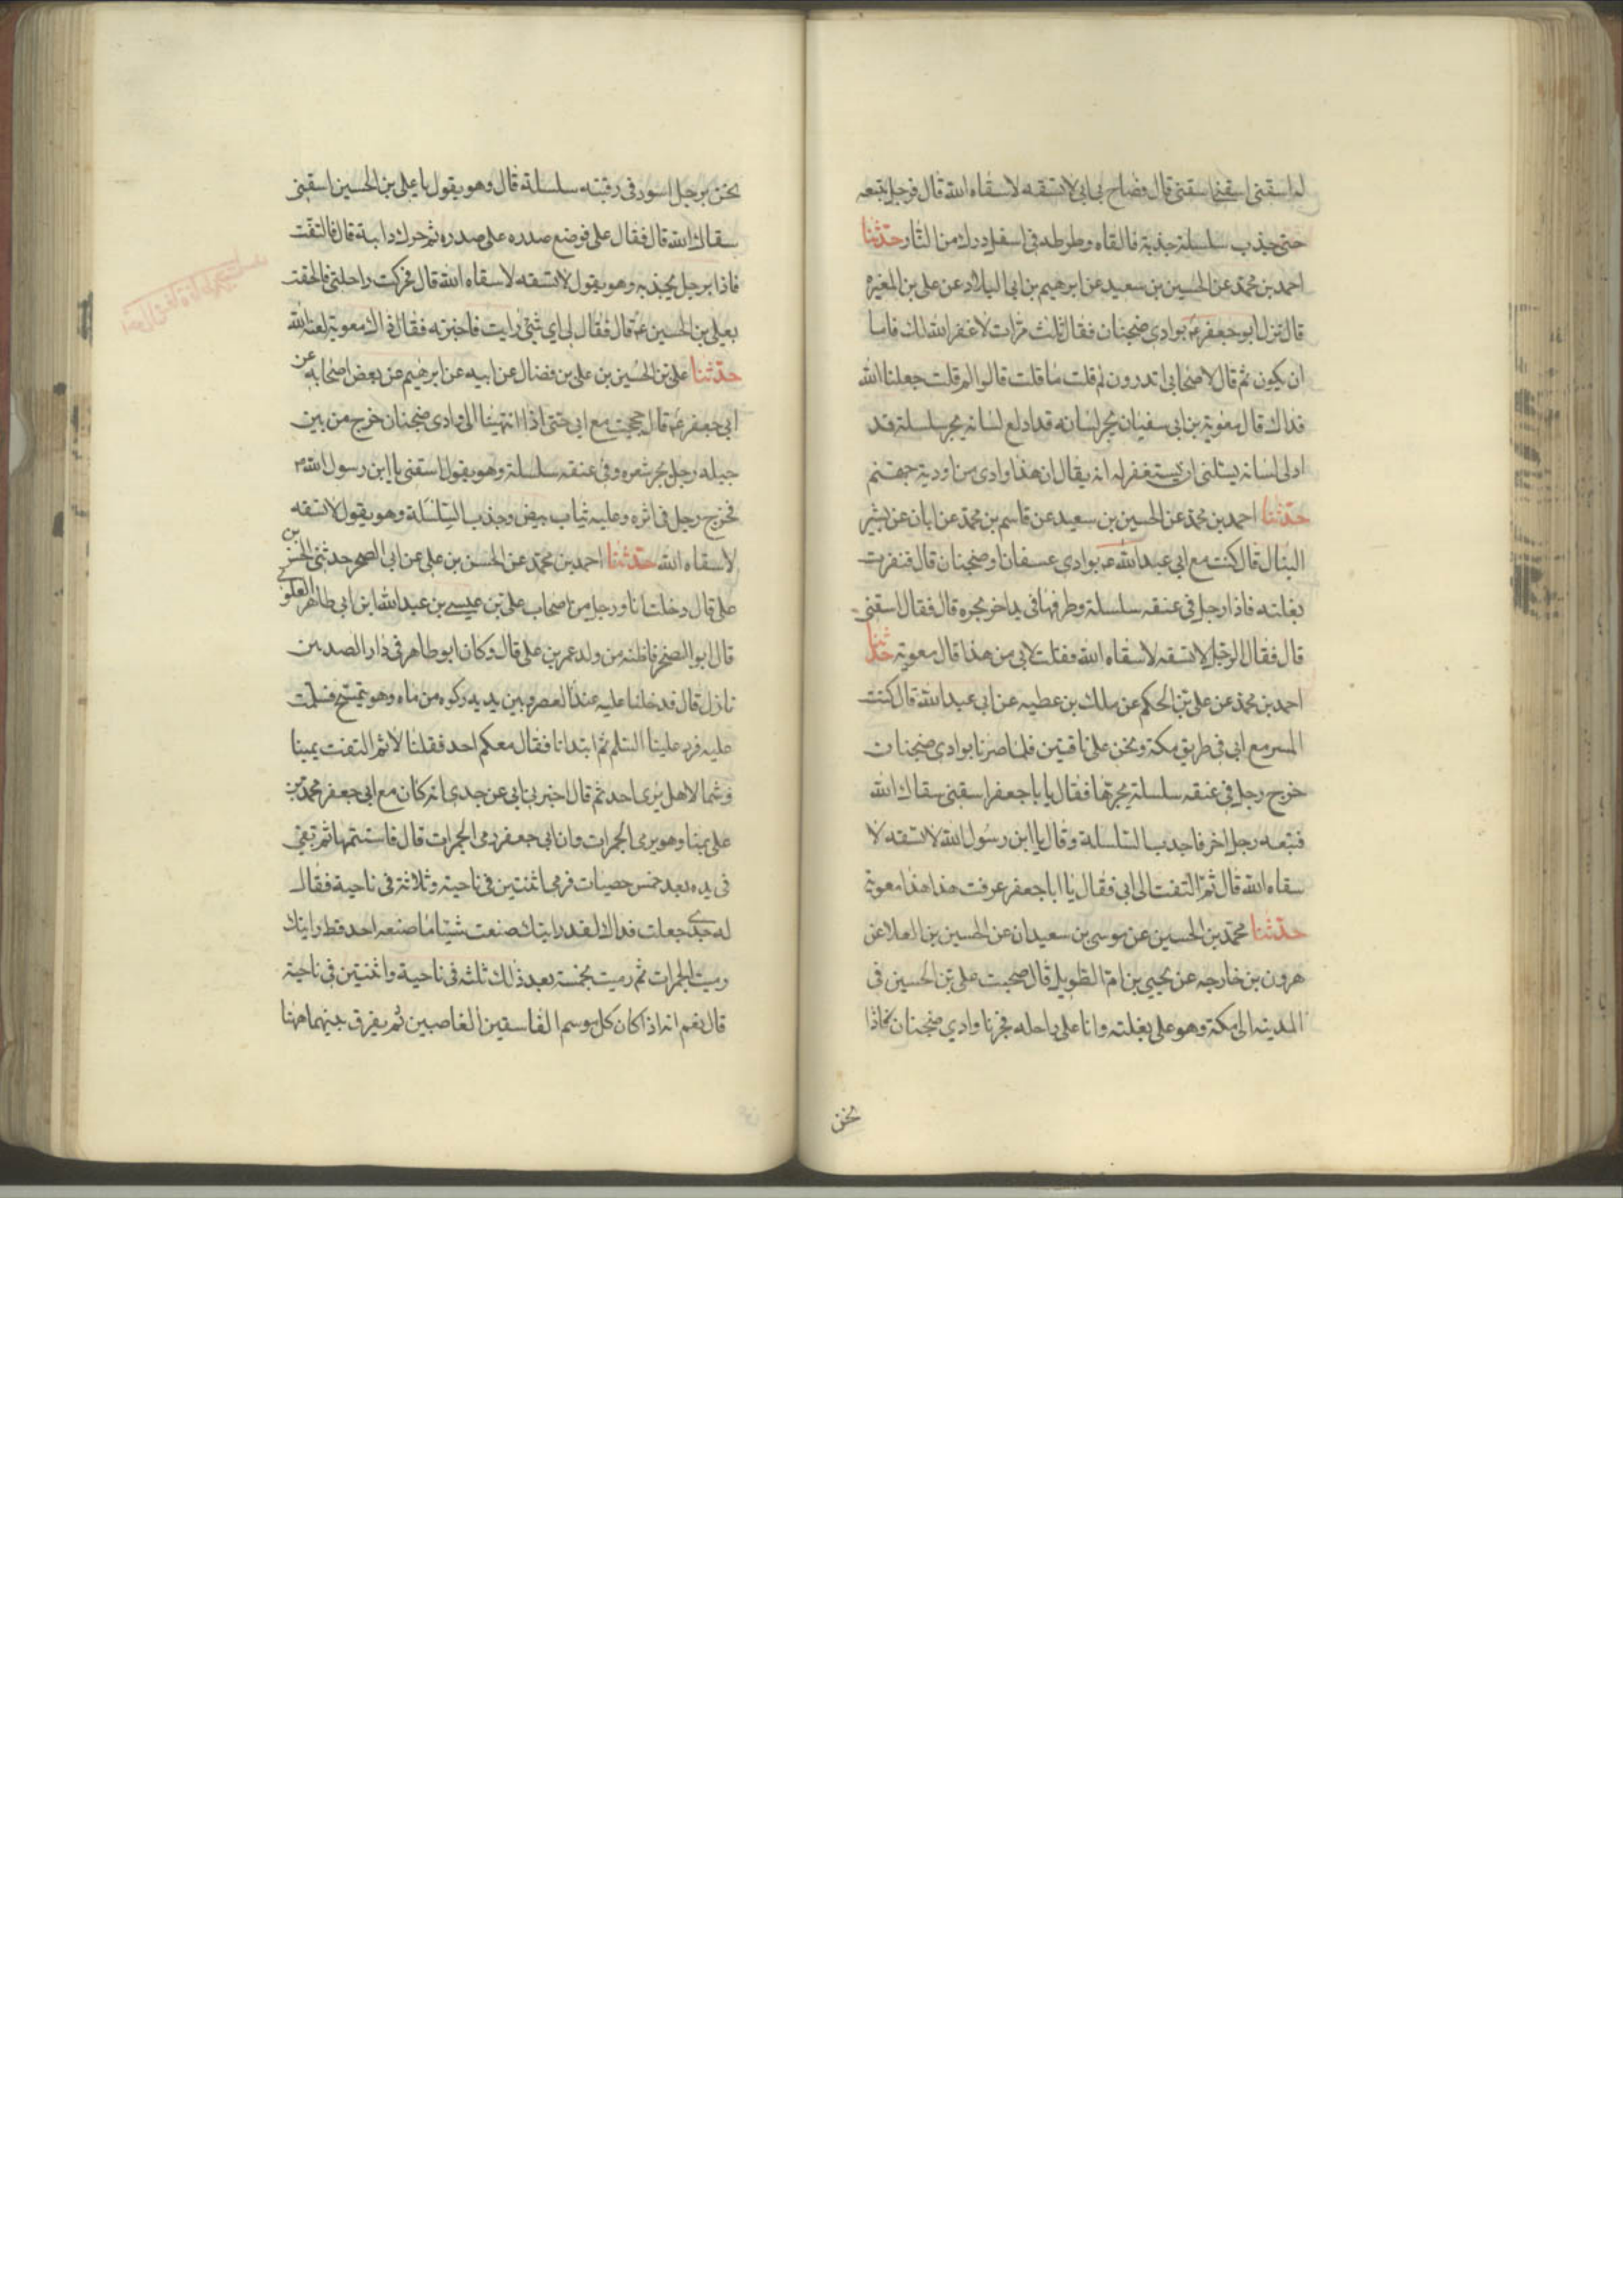 له اسقنى اسقنى اسقنى قال فصاح بى ابى لا تسقه لا سقاه الله قال فرجل يتبعه
حتى جذب سلسلة جذبة فالقاه وطرطه فى اسفل درك من النار حدثنا
احمد بن محمد عن الحسين بن سعيد عن ابرهيم بن ابى البلاد عن على بن المغيره
قال نزل ابو جعفر ع بوادى ضجنان فقال ثلث مرات لا غفر الله لك
ان يكون ثم قال لاصحابى اتدرون لم قلت ما قلت قالوا لم قلت جعلنا الله
فداك قال معوية بن ابى سفيان يجر لسانه قد ادلع لسانه يجر سلسلة قد
ادلى لسانه يسئلنى ان يستغفر له انه يقال ان هذا وادى من اودية جهنم
حدثنا احمد بن محمد عن الحسين بن سعيد عن قاسم بن محمد عن ابان عن بشير
النبال قال كنت مع ابى عبد الله ع بوادى عسفان او ضجنان قال فنفرت
بغلته فاذا رجل فى عنقه سلسلة وطرفها فى يد اخر يجره قال فقال اسقنى
قال فقال الرجل لا تسقه لا سقاه الله فقلت لابى من هذا قال معوية حدثنا
احمد بن محمد عن على بن الحكم عن ملك بن عطيه عن ابى عبد الله قال كنت
اسير مع ابى فى طريق مكة ونحن على ناقتين فلما صرنا بوادى ضجنان
خرج رجل فى عنقه سلسلة يجرها فقال يا با جعفر اسقنى سقاك الله
فتبعه رجل اخر فاجذب السلسلة وقال يا ابن رسول الله لا تسقه لا
سقاه الله قال ثم التفت الى ابى فقال يا ابا جعفر عرفت هذا هذا معوية
حدثنا محمد بن الحسين عن موسى بن سعيدان عن الحسين بن العلا عن
هرون بن خارجه عن يحيى بن ام الطويل قال صحبت على بن الحسين فى
المدينه الى مكة وهو على بغلته وانا على راحله فجزنا وادي ضجنان فاذا
نحن
نحن برجل اسود فى رقبته سلسلة قال وهو يقول يا على بن الحسين اسقنى
سقاك الله قال فقال على فوضع صدره على صدره ثم حرك دابته قال فالتفت
فاذا برجل يجذبه وهو يقول لا تسقه لا سقاه الله قال فحركت راحلتى فالحقت
بعلى بن الحسين ع قال فقال لى اى شئ رايت فاخبرته فقال ذاك معوية لعنه الله
حدثنا على بن الحسين بن على بن فضال عن ابيه عن ابرهيم عن بعض اصحابه عن
ابى جعفر ع قال حججت مع ابى حتى اذا انتهينا الى وادى ضجنان خرج من بين
جبله رجل يجر شعره وفى عنقه سلسلة وهو يقول اسقنى يا ابن رسول الله ص
فخرج رجل فى اثره وعليه ثياب بيض وجذب السلسلة وهو يقول لا تسقه
لا سقاه الله حدثنا احمد بن محمد عن الحسن بن على عن ابى الصخر حدثنى الحسن بن
على قال دخلت انا ورجل من اصحاب على بن عيسى بن عبد الله ابن ابى طاهر العلوى
قال ابو الصخر فاظنه من ولد عمر بن على قال وكان ابو طاهر فى دار الصدين
نازل قال فدخلنا عليه عند العصر وبين يديه ركوه من ماه وهو يتمسح فسلمت
عليه فرد علينا السلم ثم ابتدانا فقال معكم احد فقلنا لا ثم التفت يمينا
وشمالا هل يرى احد ثم قال اخبرنى ابى عن جدى انه كان مع ابى جعفر محمد بن
على بمنا وهو يرمى الجمرات وان ابى جعفر رمى الجمرات قال فاستتمها ثم بقى
فى يده بعد خمس حصيات فرمى اثنتين فى ناحية وثلاثة فى ناحية فقال
له جدى جعلت فداك لقد رايتك صنعت شيئا ما صنعه احد قط رايتك
رميت الجمرات ثم رميت بخمسة بعد ذلك ثلثه فى ناحية واثنتين فى ناحية
قال نعم انه اذا كان كل موسم الفاسقين الغاصبين ثم يفرق بينهما هنا